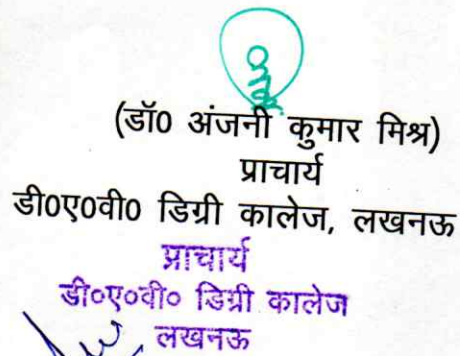 (डॉ0 अंजनी कुमार मिश्र)
प्राचार्य
डी0ए0वी0 डिग्री कालेज, लखनऊ
प्राचार्य
डी०ए०वी० डिग्री कालेज
लखनऊ